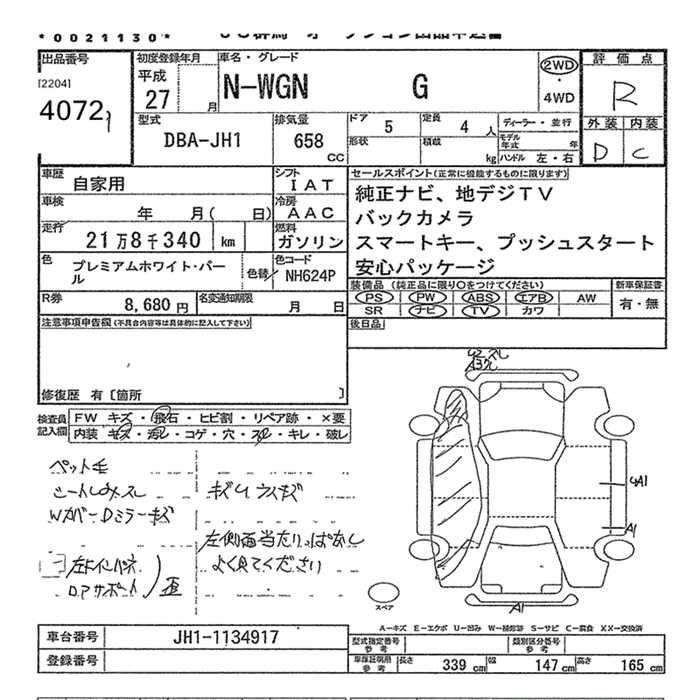 *0021130*
出品番号
[2204]
4072
初度登録年月
平成
27 月
車名・グレード
N-WGN G
2WD
・
4WD
評価点
R
外装 内装
D C
型式
DBA-JH1
排気量
658 CC
ドア
5
定員
4 人
形状
積載
kg
ディーラー・並行
モデル年式 年
ハンドル 左・右
車歴
自家用
シフト
IAT
車検
年 月( 日)
冷房
AAC
走行
21万8千340 km
燃料
ガソリン
色
プレミアムホワイト・パール
色替
色コード
NH624P
R券
8,680円
名変通知期限
月 日
セールスポイント(正常に機能するものに限ります)
純正ナビ、地デジTV
バックカメラ
スマートキー、プッシュスタート
安心パッケージ
装備品 (純正品に限り○をつけてください)
PS PW ABS エアB AW
SR ナビ TV カワ
新車保証書
有・無
後日品
注意事項申告欄(不具合内容等は具体的に記入して下さい)
修復歴 有〔箇所 〕
検査員記入欄
FW キズ・飛石・ヒビ割・リペア跡・×要
内装 キズ・汚レ・コゲ・穴・スレ・キレ・破レ
ペット毛
シートしみ・スレ
Wカバー・Dミラーキズ
キズU ライキズ
左側面当たりっぱなし
よく見てください
D.Aサポート 歪
A1
A1
スペア
A1
A-キズ E-エクボ U-凹み W-補修跡 S-サビ C-腐食 XX-交換済
車台番号
JH1-1134917
登録番号
型式指定番号
参考
類別区分番号
参考
車庫証明用
参考
長さ 339 cm 幅 147 cm 高さ 165 cm